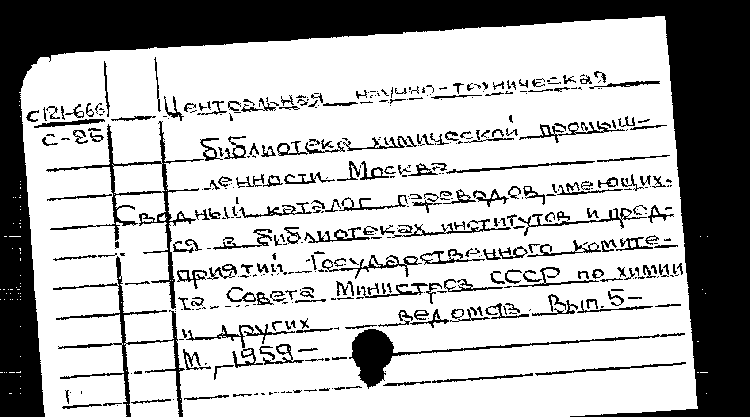 С121-666 Центральная научно-техническая
С-25 библиотека химической промыш-
ленности. Москва.
Сводный каталог переводов, имеющих-
ся в библиотеках институтов и пред-
приятий Государственного комите-
та Совета Министров СССР по химии
и других ведомств. Вып. 5-
М., 1959-